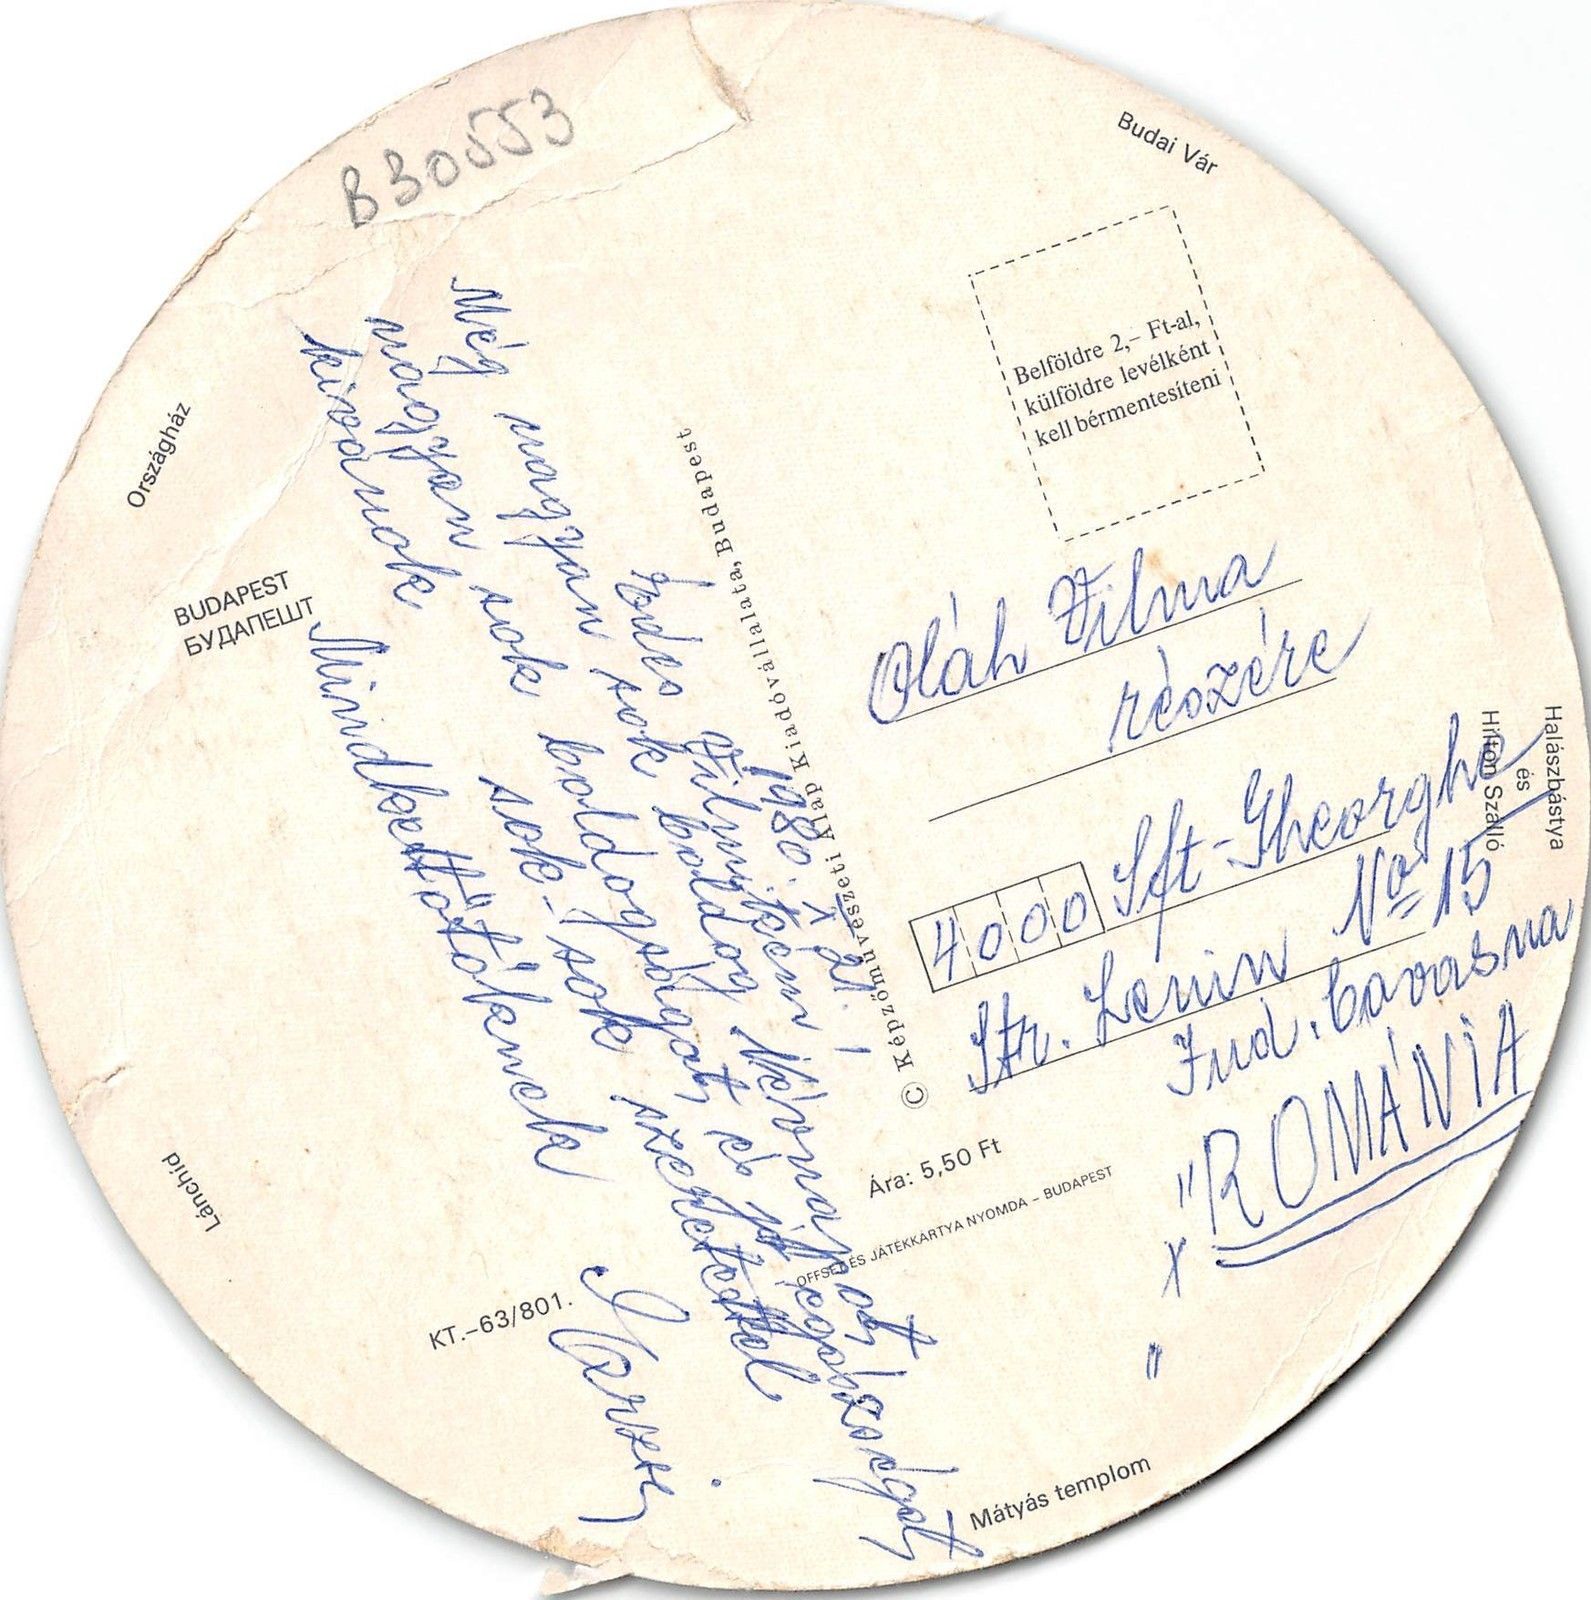 B30553
Budai Vár
Belföldre 2,– Ft-al,
külföldre levélként
kell bérmentesíteni
Országház
BUDAPEST
БУДАПЕШТ
1980. X 21. !
Édes Vilmikém Névnapot
Még nagyon sok boldog
nagyon sok boldogságot és jó egészséget
kívánok sok-sok szeretettel
Mindkettőtöknek
© Képzőművészeti Alap Kiadóvállalata, Budapest
Oláh Vilma
részére
4000 Sft-Gheorghe
Str. Lenin No 15
Jud. Covasna
"ROMÁNIA
x
"
Halászbástya
és
Hilton Szálló
Lánchíd
Ára: 5,50 Ft
OFFSET ÉS JÁTÉKKÁRTYA NYOMDA – BUDAPEST
KT.–63/801.
Mátyás templom